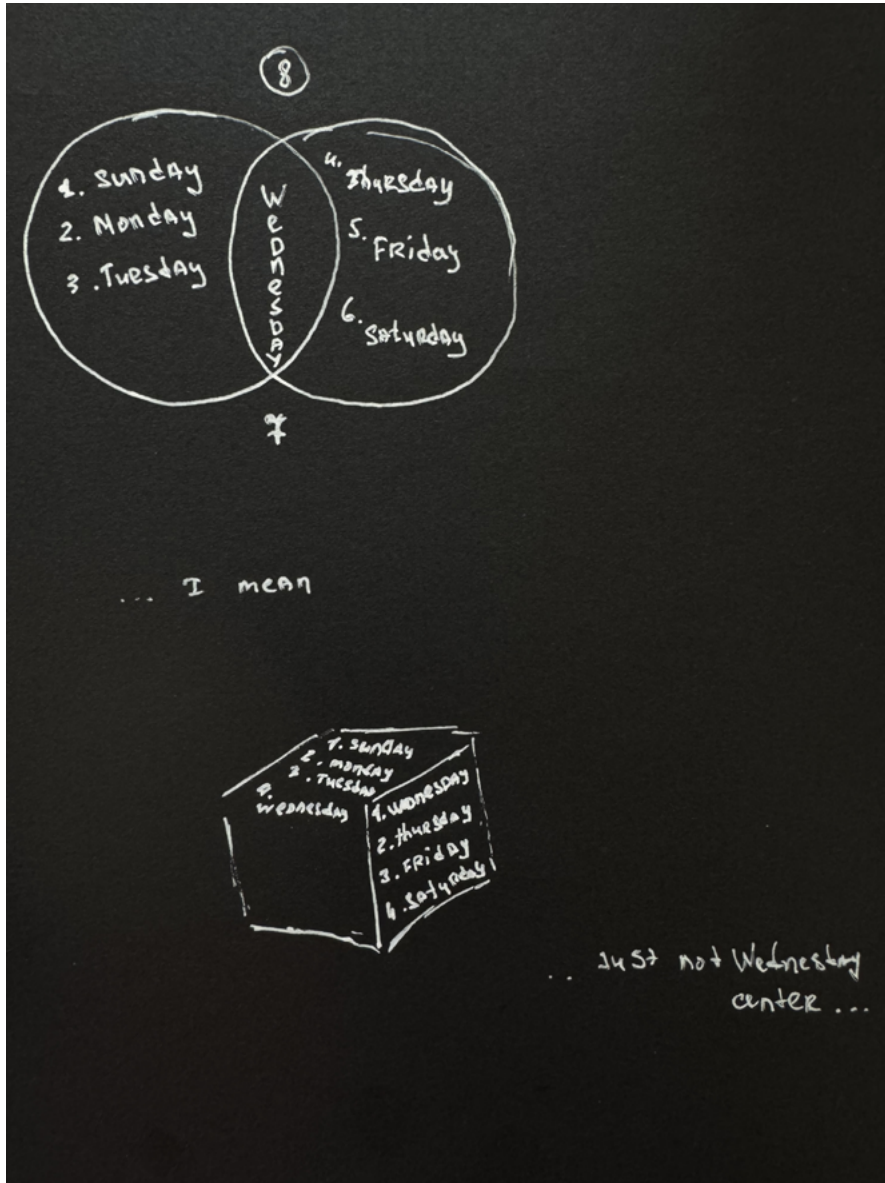 8
1. Sunday
2. Monday
3. Tuesday
Wednesday
4. Thursday
5. Friday
6. Saturday
7
... I mean
1. Sunday
2. Monday
3. Tuesday
4. Wednesday
1. Wednesday
2. thursday
3. Friday
4. Saturday
.. Just not Wednesday
center ...